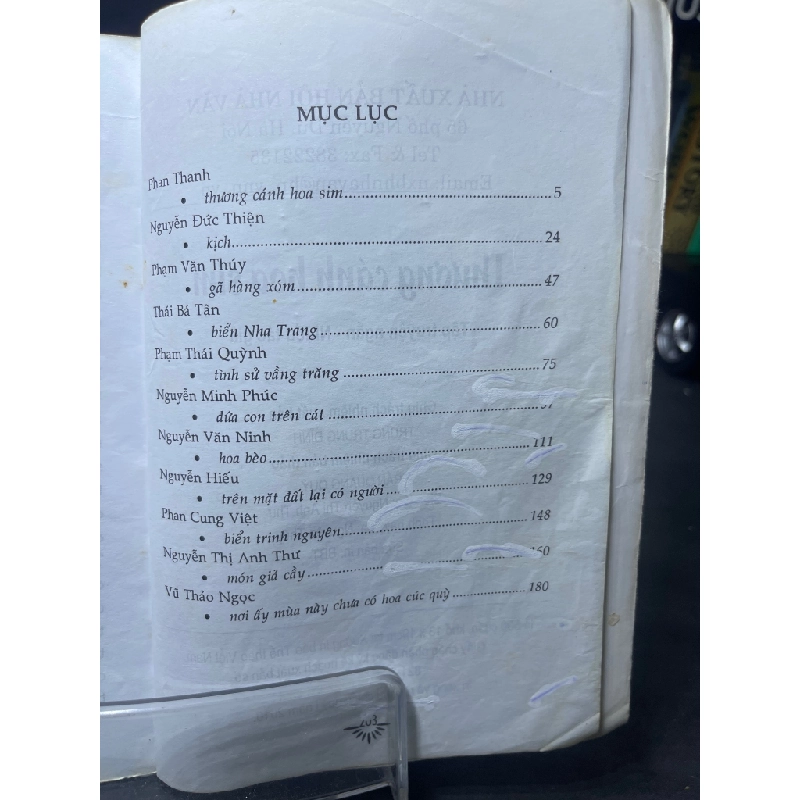 MỤC LỤC
Phan Thanh
• thương cánh hoa sim 5
Nguyễn Đức Thiện
• kịch 24
Phạm Văn Thúy
• gã hàng xóm 47
Thái Bá Tân
• biển Nha Trang 60
Phạm Thái Quỳnh
• tình sử vầng trăng 75
Nguyễn Minh Phúc
• đứa con trên cát
Nguyễn Văn Ninh
• hoa bèo 111
Nguyễn Hiếu
• trên mặt đất lại có người 129
Phan Cung Việt
• biển trinh nguyên 148
Nguyễn Thị Anh Thư
• món giả cầy
Vũ Thảo Ngọc
• nơi ấy mùa này chưa có hoa cúc quỳ 180
203